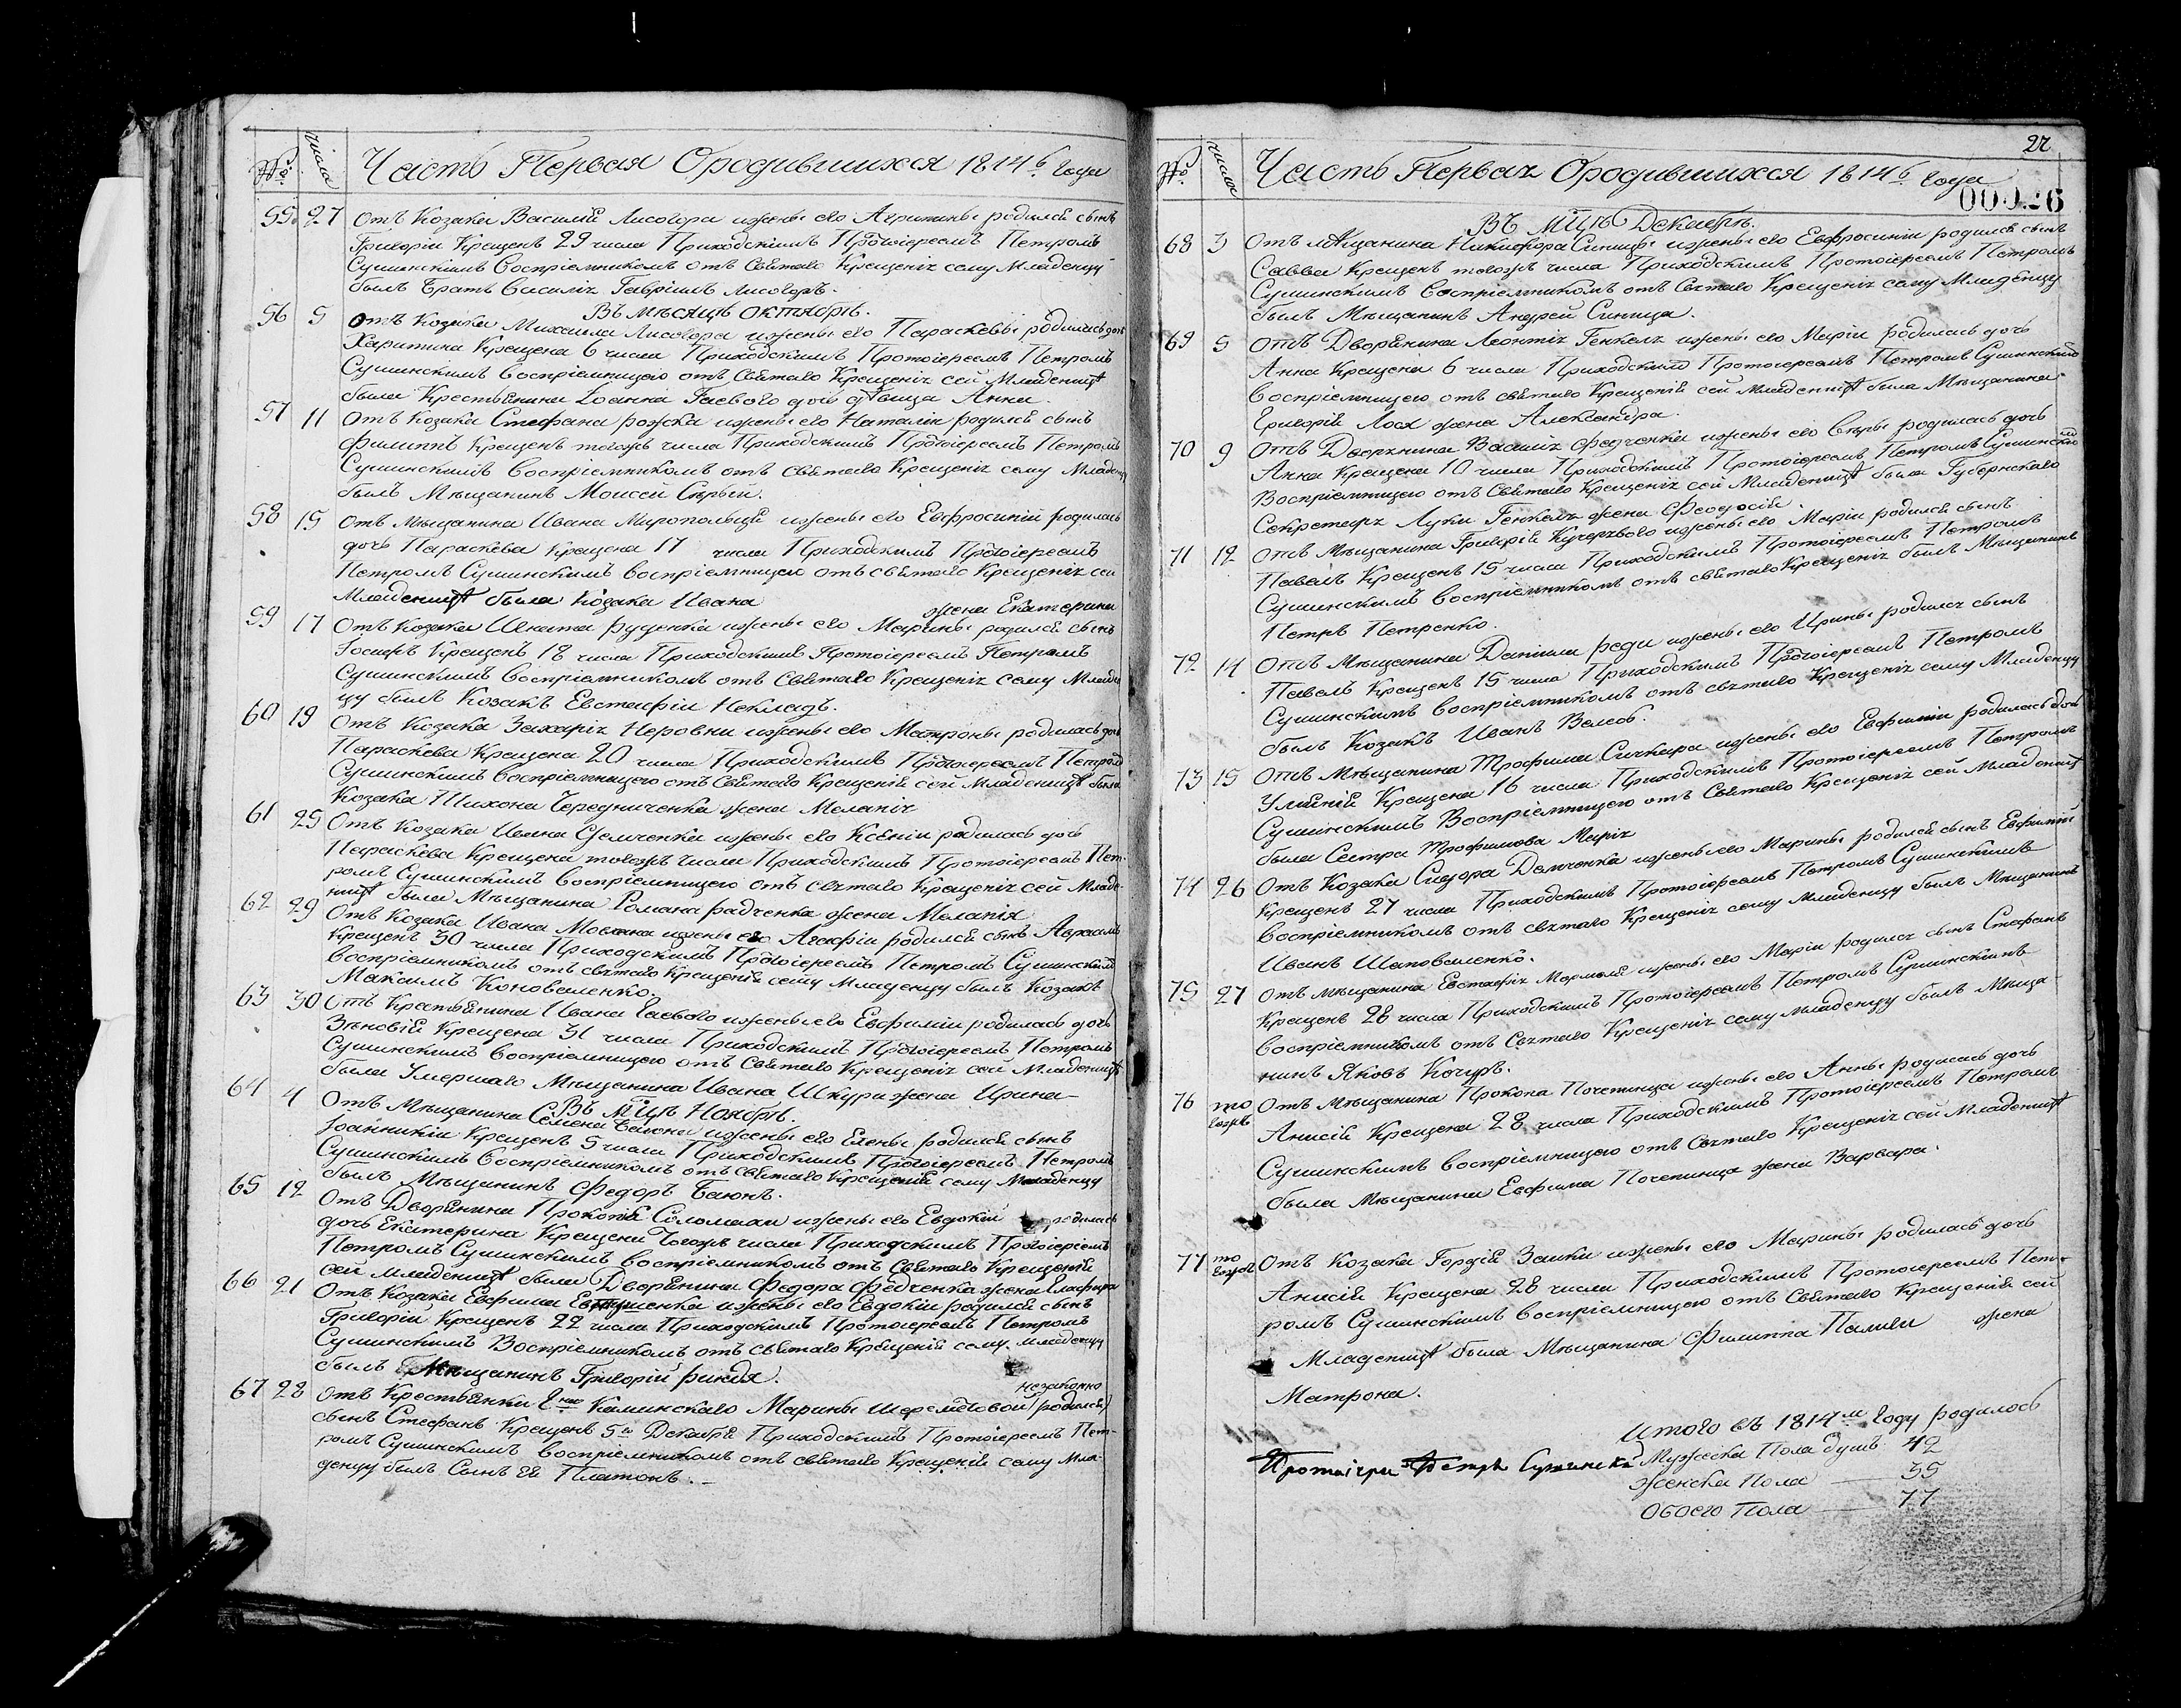 № числа Часть Первая О родившихся 1814го года
55. 27 Отъ Козака Василія Лисогора и жены его Агрипины родился сынъ
Григорій Крещенъ 29 числа Приходскимъ Протоіереемъ Петромъ
Сушинскимъ Воспріемникомъ отъ Святаго Крещенія сему Младенцу
былъ Братъ Василія Гавріилъ Лисогоръ.
Въ Мѣсяцѣ Октябрѣ.
56 5 Отъ Козака Михаила Лисогора и жены его Параскевы родилась дочь
Харитина Крещена 6 числа Приходскимъ Протоіереемъ Петромъ
Сушинскимъ воспріемницею отъ Святаго Крещенія сей Младеницѣ
была Крестьянина Іоанна Гаевого дочь дѣвица Анна.
57 11 Отъ Козака Стефана рожка и жены его Наталіи родился сынъ
Филиппъ Крещенъ тогожъ числа Приходскимъ Протоіереемъ Петромъ
Сушинскимъ Воспріемникомъ отъ Святаго Крещенія сему Младенцу
былъ Мѣщанинъ Моисей Сѣрый.
58 15 Отъ Мѣщанина Ивана Миропольця и жены его Евфросиніи родилась
дочь Параскева Крещена 17 числа Приходскимъ Протоіереемъ
Петромъ Сушинскимъ воспріемницею отъ Святаго Крещенія сей
Младеницѣ была Козака Ивана жена Екатерина
59 17 Отъ Козака Игната руденка и жены его Марины родился сынъ
Іосифъ Крещенъ 18 числа Приходскимъ Протоіереемъ Петромъ
Сушинскимъ воспріемникомъ отъ Святаго Крещенія сему Младен
цу былъ Козакъ Евстафій Некладъ.
60 19 Отъ Козака Захарія Неровни и жены его Матроны родилась дочь
Параскева Крещена 20 числа Приходскимъ Протоіереемъ Петромъ
Сушинскимъ воспріемницею отъ Святаго Крещенія сей Младеницѣ была
Козака Тихона Чередниченка жена Меланія
61 25 Отъ Козака Ивана Демченка и жены его Ксеніи родилась дочь
Параскева Крещена тогожъ числа Приходскимъ Протоіереемъ Пет-
ромъ Сушинскимъ воспріемницею отъ святаго Крещенія сей Младе-
ницѣ была Мѣщанина Романа радченка жена Меланія
62 29 Отъ Козака Ивана Мовчана и жены его Агафіи родился сынъ Аврамій
Крещенъ 30 числа Приходскимъ Протоіереемъ Петромъ Сушинскимъ
воспріемникомъ отъ святаго Крещенія сему Младенцу былъ Козакъ
Максимъ Коноваленко.
63 30 Отъ Крестьянина Ивана Гаевого и жены его Евфиміи родилась дочь
Зѣновія Крещена 31 числа Приходскимъ Протоіереемъ Петромъ
Сушинскимъ воспріемницею отъ Святаго Крещенія сей Младеницѣ
была Умершаго Мѣщанина Ивана Шкури жена Ирина
Въ Мцѣ Ноябрѣ.
64 4 Отъ Мѣщанина Семена Баюна и жены его Елены родился сынъ
Іоанникій Крещенъ 5 числа Приходскимъ Протоіереемъ Петромъ
Сушинскимъ воспріемникомъ отъ святаго Крещенія сему Младенцу
былъ Мѣщанинъ Федоръ Баюнъ.
65 12 Отъ Дворянина Прокопія Соломахи и жены его Евдокіи родилась
дочь Екатерина Крещена тогожъ числа Приходскимъ Протоіереемъ
Петромъ Сушинскимъ воспріемникомъ отъ Святаго Крещенія
сей младеницѣ была Дворянина Федора Федченка жена Глафира
66 21 Отъ Козака Евфима и жены его Евдокіи родился сынъ
Григорій Крещенъ 22 числа Приходскимъ Протоіереемъ Петромъ
Сушинскимъ Воспріемникомъ отъ святаго Крещенія сему младенцу
былъ Мѣщанинъ Григорій
67 28 Отъ Крестьянки Каминскаго Марины Шереметовой (незаконно родился)
сынъ Стефанъ Крещенъ 5го Декабря Приходскимъ Протоіереемъ Пет-
ромъ Сушинскимъ воспріемникомъ отъ святаго Крещенія сему Мла-
денцу былъ Сынъ ея Платонъ.
27
№ числа Часть Первая О родившихся 1814го года
00026
Въ Мцѣ Декабрѣ.
68 3 Отъ Мѣщанина Никифора Синицы и жены его Евфросиніи родился сынъ
Савва Крещенъ тогожъ числа Приходскимъ Протоіереемъ Петромъ
Сушинскимъ воспріемникомъ отъ Святаго Крещенія сему Младенцу
былъ Мѣщанинъ Андрей Синица.
69 5 Отъ Дворянина Леонтія Генкеля и жены его Маріи родилась дочь
Анна Крещена 6 числа Приходскимъ Протоіереемъ Петромъ Сушинскимъ
воспріемницею отъ святаго Крещенія сей Младеницѣ была Мѣщанина
Григорія Лося жена Александра.
70 9 Отъ Дворянина Василія Федченка и жены его Вѣры родилась дочь
Анна Крещена 10 числа Приходскимъ Протоіереемъ Петромъ Сушинскимъ
Воспріемницею отъ Святаго Крещенія сей Младеницѣ была Губернскаго
Секретаря Луки Генкеля жена Феодосія.
71 12 Отъ Мѣщанина Григорія Кучерявого и жены его Маріи родился сынъ
Павелъ Крещенъ 15 числа Приходскимъ Протоіереемъ Петромъ
Сушинскимъ воспріемникомъ отъ святаго Крещенія былъ Мѣщанинъ
Петръ Петренко.
72 14 Отъ Мѣщанина Даніила реди и жены его Ирины родился сынъ
Павелъ Крещенъ 15 числа Приходскимъ Протоіереемъ Петромъ
Сушинскимъ воспріемникомъ отъ святаго Крещенія сему Младенцу
былъ Козакъ Иванъ Велсов.
73 15 Отъ Мѣщанина Трофима Сичкара и жены его Евфиміи родилась дочь
Уліянія Крещена 16 числа Приходскимъ Протоіереемъ Петромъ
Сушинскимъ Воспріемницею отъ Святаго Крещенія сей Младеницѣ
была Сестра Трофимова Марія
74 26 Отъ Козака Сидора Демченка и жены его Марины родился сынъ Евфимій
Крещенъ 27 числа Приходскимъ Протоіереемъ Петромъ Сушинскимъ
воспріемникомъ отъ святаго Крещенія сему младенцу былъ Мѣщанинъ
Иванъ Шаповаленко.
75 27 Отъ мѣщанина Евстафія Мармаля и жены его Маріи родился сынъ Стефанъ
Крещенъ 28 числа Приходскимъ Протоіереемъ Петромъ Сушинскимъ
воспріемникомъ отъ Святаго Крещенія сему младенцу былъ Мѣща-
нинъ Яковъ Кочуръ.
76 то гожъ Отъ Мѣщанина Прокопа Почепинца и жены его Анны родилась дочь
Анисія Крещена 28 числа Приходскимъ Протоіереемъ Петромъ
Сушинскимъ воспріемницею отъ Святаго Крещенія сей Младеницѣ
была Мѣщанина Евфима Почепинца жена Варвара.
77 то гожъ Отъ Козака Гордія Заики и жены его Марины родилась дочь
Анисія Крещена 28 числа Приходскимъ Протоіереемъ Пет-
ромъ Сушинскимъ воспріемницею отъ Святаго Крещенія сей
Младеницѣ была Мѣщанина Филиппа Паливи жена
Матрона.
Итого въ 1814м году родилось
Мужеска Пола душъ 42
Женска Пола 35
Обоего Пола 77
Протоіерей Петръ Сушинскій